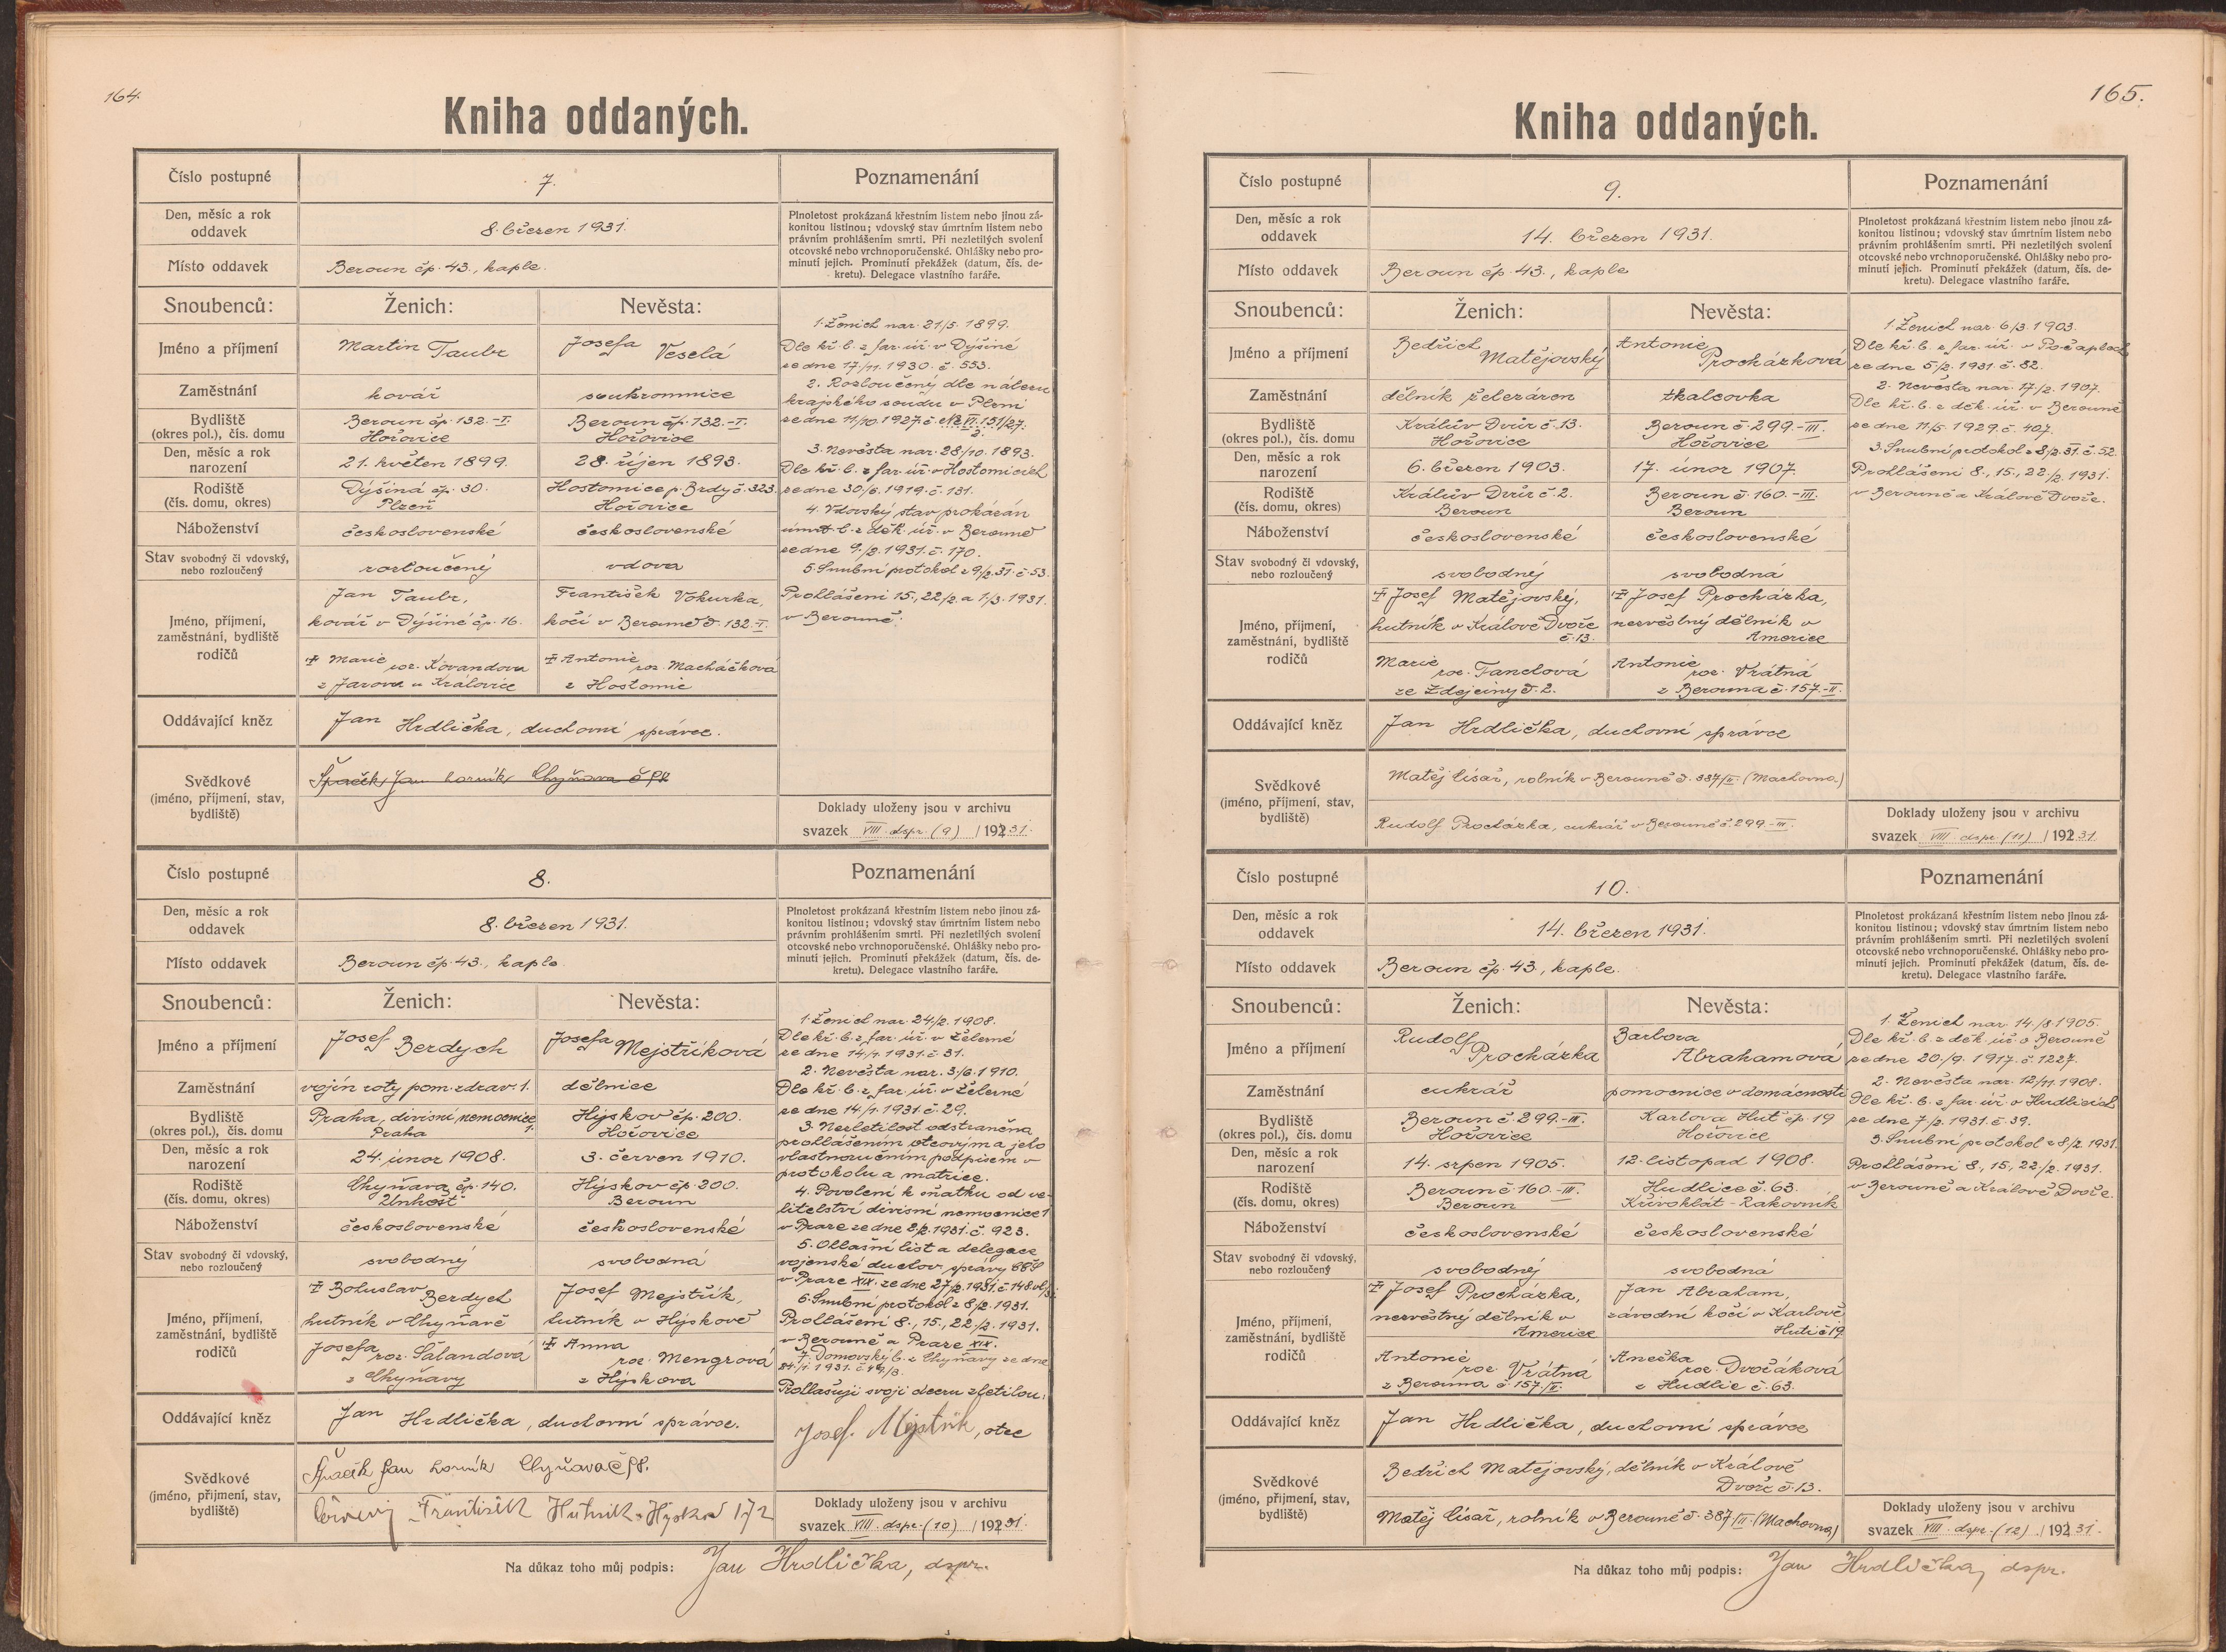 164.
Kniha oddaných.
Číslo postupné
7.
Poznamenání
Den, měsíc a rok
oddavek
8. březen 1931.
Plnoletost prokázaná křestním listem nebo jinou zá-
konitou listinou; vdovský stav úmrtním listem nebo
právním prohlášením smrti. Při nezletilých svolení
otcovské nebo vrchnoporučenské. Ohlášky nebo pro-
minutí jejich. Prominutí překážek (datum, čís. de-
kretu). Delegace vlastního faráře.
Místo oddavek
Beroun čp. 43., kaple.
Snoubenců:
Ženich:
Nevěsta:
Jméno a příjmení
Martin Taubr
Josefa Veselá
Zaměstnání
kovář
soukromnice
Bydliště
(okres pol.), čís. domu
Beroun čp. 132.-I.
Hořovice
Beroun čp. 132.-I.
Hořovice
Den, měsíc a rok
narození
21. květen 1899.
28. říjen 1893.
Rodiště
(čís. domu, okres)
Dýšiná čp. 30.
Plzeň
Hostomice p. Brdy č. 323.
Hořovice
Náboženství
československé
československé
Stav svobodný či vdovský,
nebo rozloučený
rozloučený
vdova
Jméno, příjmení,
zaměstnání, bydliště
rodičů
Jan Taubr,
kovář v Dýšině čp. 16.
František Vokurka,
kočí v Berouně č. 132-I.
Marie roz. Kovandova
z Jarova u Kralovic
Antonie roz. Macháčková
z Hostomic
1. Ženich nar. 21/5. 1899.
Dle kř. l. z far. úř. v Dýšině
ze dne 17/11. 1930. č. 553.
2. Rozloučený dle nálezu
krajského soudu v Plzni
ze dne 11/10. 1927. č. Nc VI. 151/27.
2.
3. Nevěsta nar. 28./10. 1893.
Dle kř. l. z far. úř. v Hostomicích
ze dne 30/6. 1919. č. 131.
4. Vdovský stav prokázán
úmrt. l. z děk. úř. v Berouně
ze dne 9./2. 1931. č. 170.
5. Snubní protokol z 9/2. 31. č. 53.
Prohlášeni 15., 22/2. a 1/3. 1931.
v Berouně.
Oddávající kněz
Jan Hrdlička, duchovní správce.
Svědkové
(jméno, příjmení, stav,
bydliště)
Špaček Jan horník Chyňava č.
Doklady uloženy jsou v archivu
svazek VIII. dspr. (9) /1931.
Číslo postupné
8.
Poznamenání
Den, měsíc a rok
oddavek
8. březen 1931.
Plnoletost prokázaná křestním listem nebo jinou zá-
konitou listinou; vdovský stav úmrtním listem nebo
právním prohlášením smrti. Při nezletilých svolení
otcovské nebo vrchnoporučenské. Ohlášky nebo pro-
minutí jejich. Prominutí překážek (datum, čís. de-
kretu). Delegace vlastního faráře.
Místo oddavek
Beroun čp. 43., kaple.
Snoubenců:
Ženich:
Nevěsta:
Jméno a příjmení
Josef Berdych
Josefa Mejstříková
Zaměstnání
vojín roty pom. zdrav. 1.
dělnice
Bydliště
(okres pol.), čís. domu
Praha, divisní nemocnice 1.
Praha
Hýskov čp. 200.
Hořovice
Den, měsíc a rok
narození
24. únor 1908.
3. červen 1910.
Rodiště
(čís. domu, okres)
Chyňava čp. 140.
Unhošť
Hýskov čp. 200.
Beroun
Náboženství
československé
československé
Stav svobodný či vdovský,
nebo rozloučený
svobodný
svobodná
Jméno, příjmení,
zaměstnání, bydliště
rodičů
Bohuslav Berdych
hutník v Chyňavě
Josef Mejstřík,
hutník v Hýskově
Josefa roz. Šalandová
z Chyňavy
Anna roz. Mengrová
z Hýskova
1. Ženich nar. 24/2. 1908.
Dle kř. l. z far. úř. v Železné
ze dne 14/1. 1931. č. 31.
2. Nevěsta nar. 3/6. 1910.
Dle kř. l. z far. úř. v Železné
ze dne 14./1. 1931. č. 29.
3. Nezletilost odstraněna
prohlášením otcovým a jeho
vlastnoručním podpisem v
protokolu a matrice.
4. Povolení k sňatku od ve-
litelství divisní nemocnice 1
v Praze ze dne 2/2. 1931. č. 923.
5. Ohlašní list a delegace
vojenské duchov. správy
v Praze XIX. ze dne 27/2. 1931. č. 148
6. Snubní protokol z 8/2. 1931.
Prohlášeni 8., 15., 22/2. 1931.
v Berouně a Praze XIX.
7. Domovský l. z Chyňavy ze dne
Prohlašuji svoji dceru zletilou:
Josef Mejstřík, otec
Oddávající kněz
Jan Hrdlička, duchovní správce.
Svědkové
(jméno, příjmení, stav,
bydliště)
Špaček Jan horník Chyňava č. 98.
Červený František Hutník Hýskov 172
Doklady uloženy jsou v archivu
svazek VIII. dspr. (10) /1931.
Na důkaz toho můj podpis: Jan Hrdlička, dspr.
165.
Kniha oddaných.
Číslo postupné
9.
Poznamenání
Den, měsíc a rok
oddavek
14. březen 1931.
Plnoletost prokázaná křestním listem nebo jinou zá-
konitou listinou; vdovský stav úmrtním listem nebo
právním prohlášením smrti. Při nezletilých svolení
otcovské nebo vrchnoporučenské. Ohlášky nebo pro-
minutí jejich. Prominutí překážek (datum, čís. de-
kretu). Delegace vlastního faráře.
Místo oddavek
Beroun čp. 43., kaple
Snoubenců:
Ženich:
Nevěsta:
Jméno a příjmení
Bedřich Matějovský
Antonie Procházková
Zaměstnání
dělník železáren
tkalcovka
Bydliště
(okres pol.), čís. domu
Králův Dvůr č. 13.
Hořovice
Beroun č. 299.-III.
Hořovice
Den, měsíc a rok
narození
6. březen 1903.
17. únor 1907.
Rodiště
(čís. domu, okres)
Králův Dvůr č. 2.
Beroun
Beroun č. 160.-III.
Beroun
Náboženství
československé
československé
Stav svobodný či vdovský,
nebo rozloučený
svobodný
svobodná
Jméno, příjmení,
zaměstnání, bydliště
rodičů
Josef Matějovský,
hutník v Králově Dvoře
č. 13.
Josef Procházka,
nezvěstný dělník v
Americe
Marie roz. Tanclová
ze Zdejciny č. 2.
Antonie roz. Vrátná
z Berouna č. 157.-II.
1. Ženich nar. 6/3. 1903.
Dle kř. l. z far. úř. v Počaplech
ze dne 5/2. 1931. č. 82.
2. Nevěsta nar. 17./2. 1907.
Dle kř. l. z děk. úř. v Berouně
ze dne 11/5. 1929. č. 407.
3. Snubní protokol z 8/2. 31. č. 52.
Prohlášeni 8., 15., 22/2. 1931.
v Berouně a Králově Dvoře.
Oddávající kněz
Jan Hrdlička, duchovní správce
Svědkové
(jméno, příjmení, stav,
bydliště)
Matěj Císař, rolník v Berouně č. 387/II. (Machovna)
Rudolf Procházka, cukrář v Berouně č. 299-III.
Doklady uloženy jsou v archivu
svazek VIII. dspr. (11) /1931.
Číslo postupné
10.
Poznamenání
Den, měsíc a rok
oddavek
14. březen 1931.
Plnoletost prokázaná křestním listem nebo jinou zá-
konitou listinou; vdovský stav úmrtním listem nebo
právním prohlášením smrti. Při nezletilých svolení
otcovské nebo vrchnoporučenské. Ohlášky nebo pro-
minutí jejich. Prominutí překážek (datum, čís. de-
kretu). Delegace vlastního faráře.
Místo oddavek
Beroun čp. 43., kaple.
Snoubenců:
Ženich:
Nevěsta:
Jméno a příjmení
Rudolf Procházka
Barbora Abrahamová
Zaměstnání
cukrář
pomocnice v domácnosti
Bydliště
(okres pol.), čís. domu
Beroun č. 299.-III.
Hořovice
Karlova Huť čp. 19
Hořovice
Den, měsíc a rok
narození
14. srpen 1905.
12. listopad 1908.
Rodiště
(čís. domu, okres)
Beroun č. 160.-III.
Beroun
Hudlice č. 63.
Křivoklát - Rakovník
Náboženství
československé
československé
Stav svobodný či vdovský,
nebo rozloučený
svobodný
svobodná
Jméno, příjmení,
zaměstnání, bydliště
rodičů
Josef Procházka,
nezvěstný dělník v
Americe
Jan Abraham,
závodní kočí v Karlově
Huti č. 19
Antonie roz. Vrátná
z Berouna č. 157./II.
Anežka roz. Dvořáková
z Hudlic č. 63.
1. Ženich nar. 14./8. 1905.
Dle kř. l. z děk. úř. v Berouně
ze dne 20/9. 1917. č. 1227.
2. Nevěsta nar. 12/11. 1908.
Dle kř. l. z far. úř. v Hudlicích
ze dne 7/2. 1931. č. 39.
3. Snubní protokol z 8/2. 1931.
Prohlášeni 8., 15., 22./2. 1931.
v Berouně a Králově Dvoře.
Oddávající kněz
Jan Hrdlička, duchovní správce
Svědkové
(jméno, příjmení, stav,
bydliště)
Bedřich Matějovský, dělník v Králově
Dvoře č. 13.
Matěj Císař, rolník v Berouně č. 387/II. (Machovna)
Doklady uloženy jsou v archivu
svazek VIII. dspr. (12) /1931.
Na důkaz toho můj podpis: Jan Hrdlička, dspr.